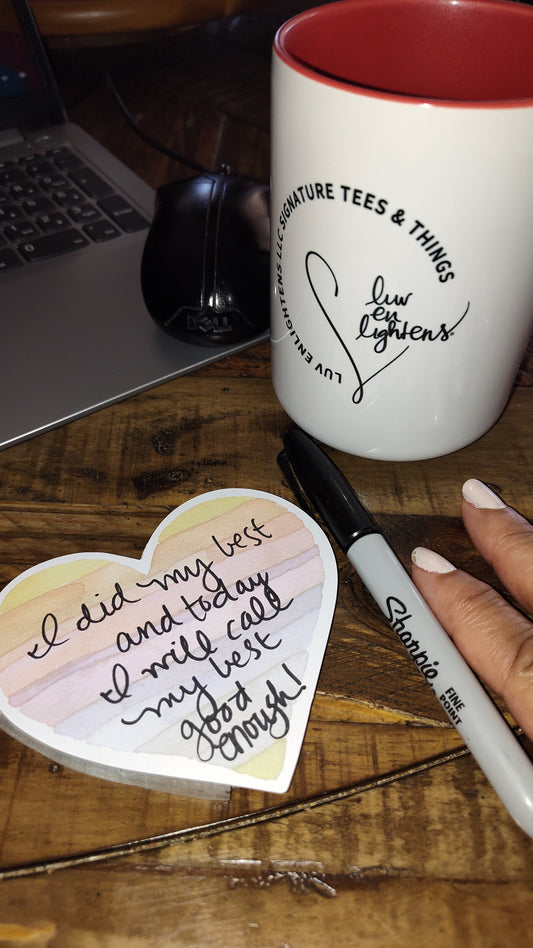 LUV ENLIGHTENS LLC SIGNATURE TEES & THINGS
luv
en
lightens
DELL
I did my best
and today
I will call
my best
good
enough!
Sharpie
FINE
POINT